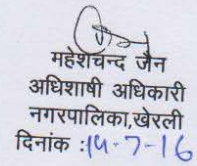 महेशचन्द जैन
अधिशाषी अधिकारी
नगरपालिका,खेरली
दिनांक :14-7-16